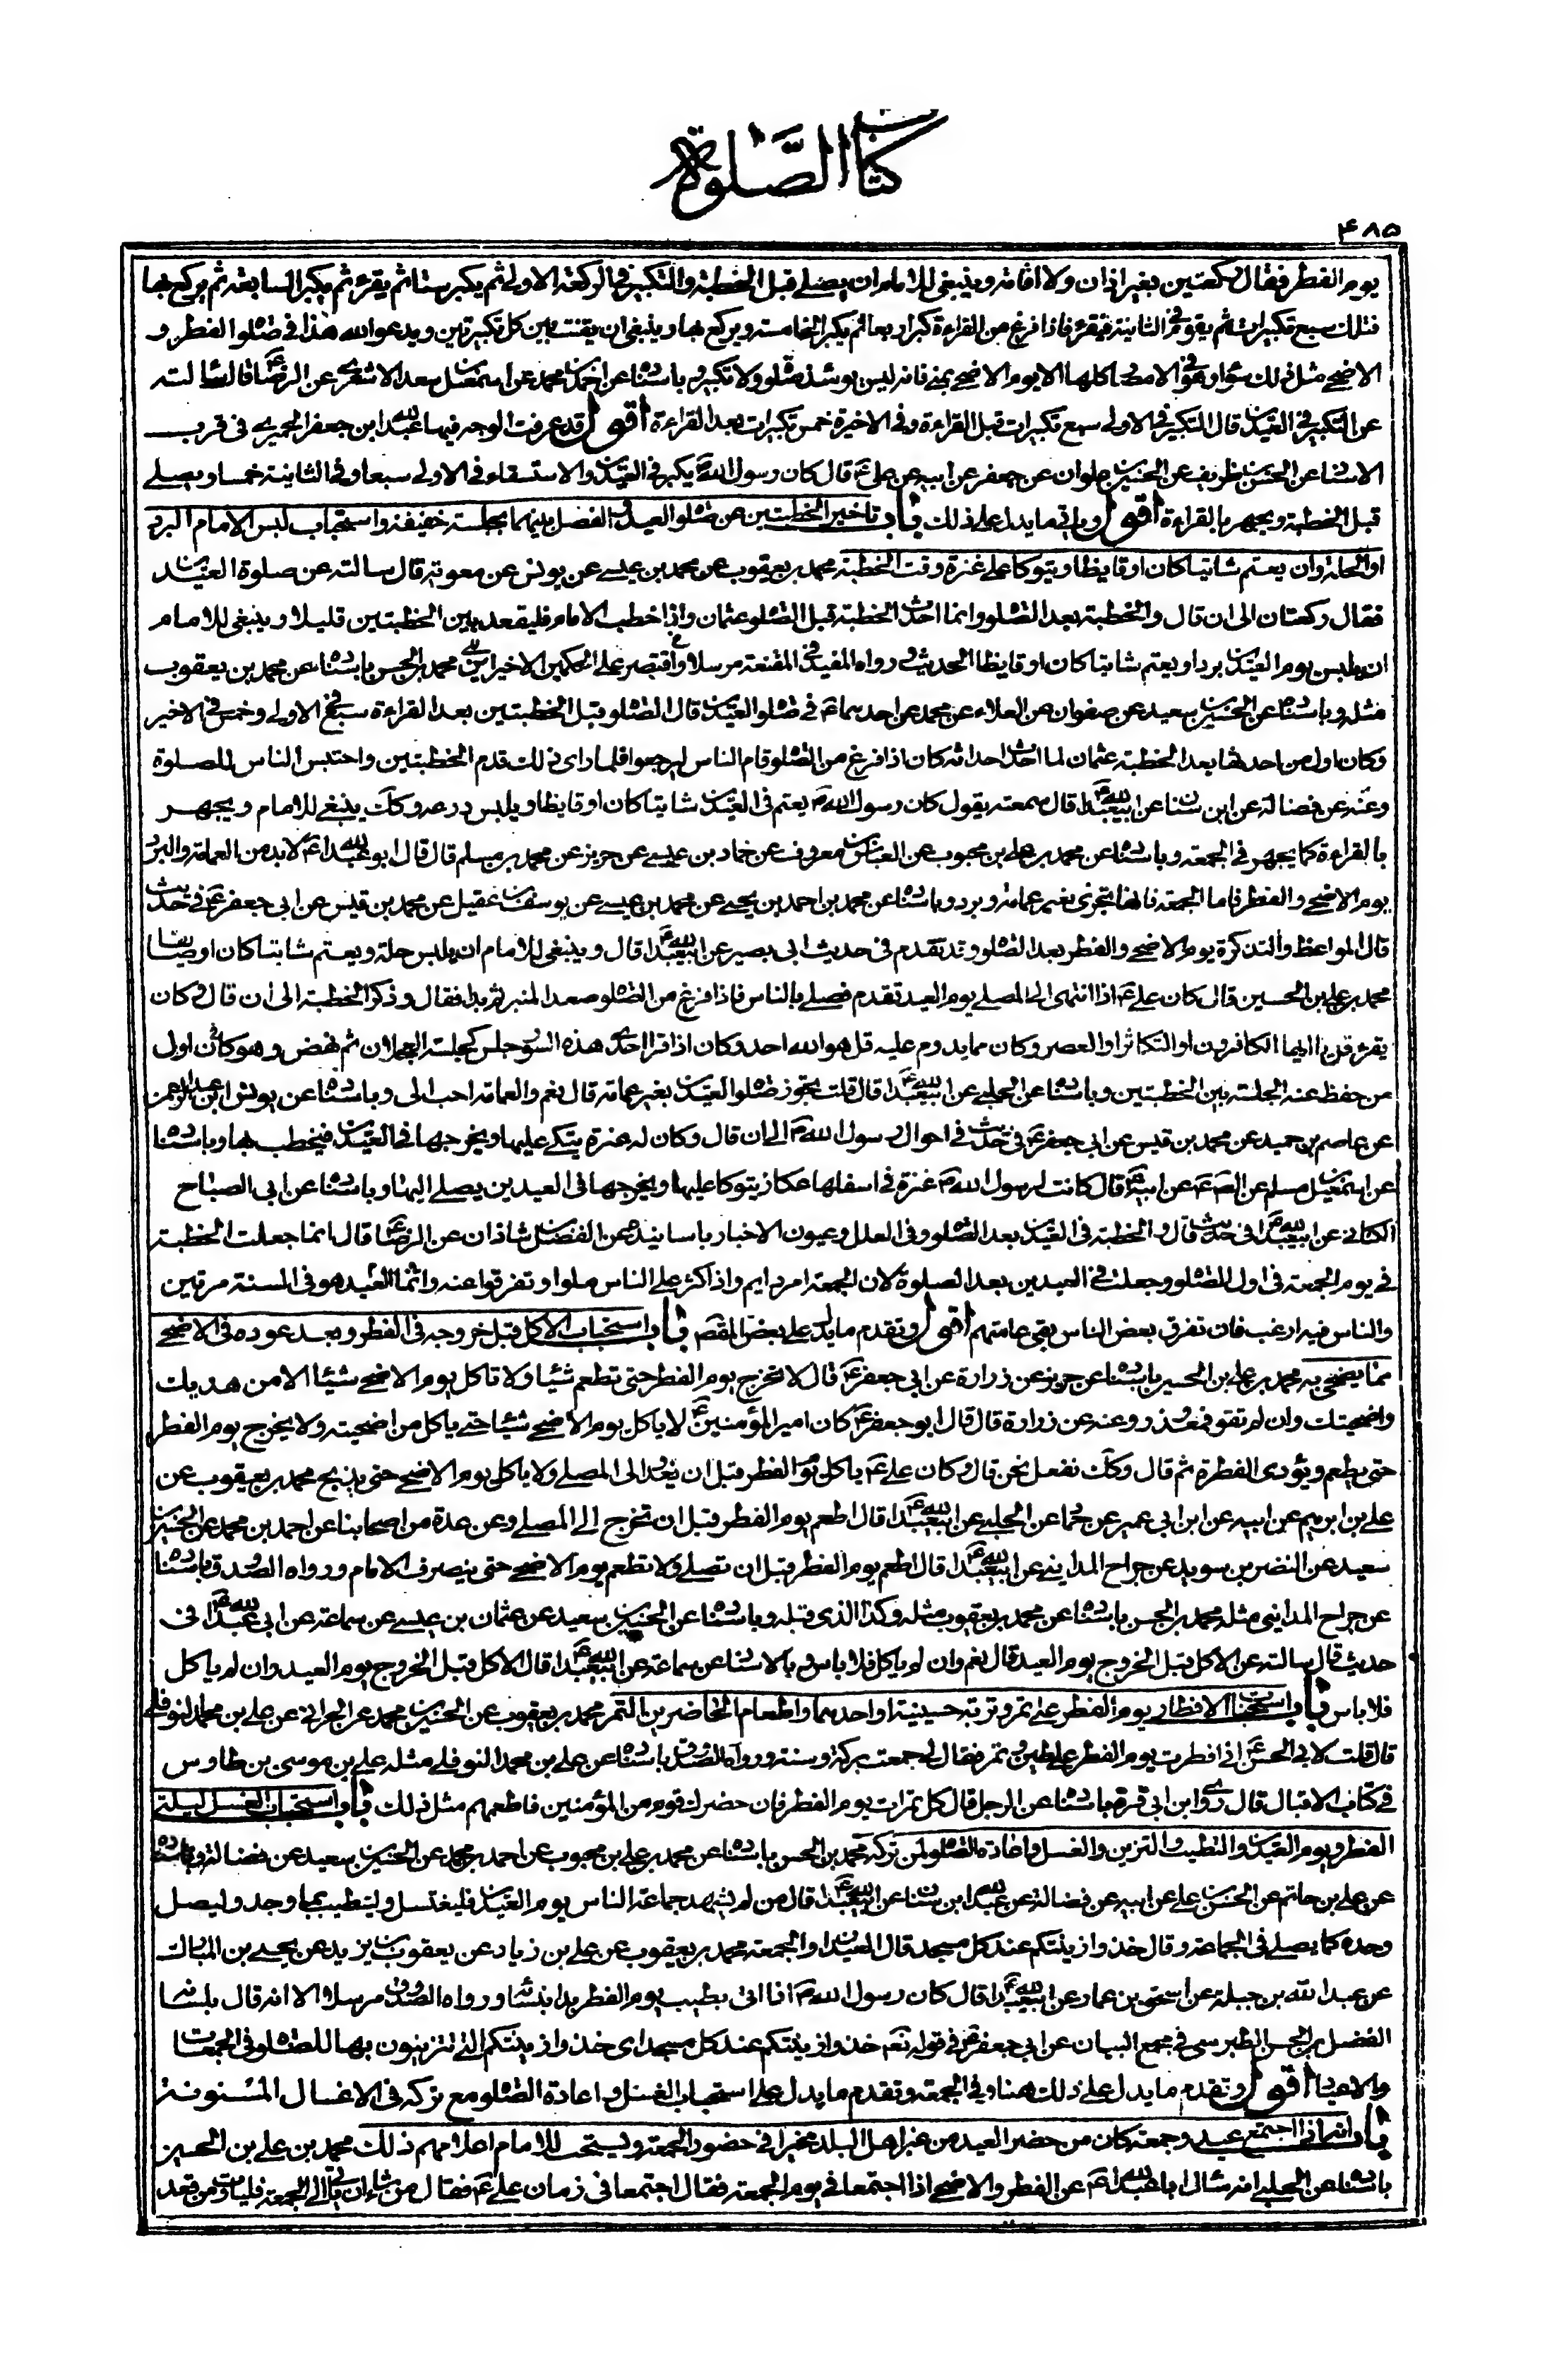 كتاب الصلوة
۴۸۵
يوم الفطر فقال ركعتين بغير اذان ولا اقامة وينبغي للامام ان يصلي قبل الخطبة والتكبير في الركعة الاولى ثم يكبر ستا ثم يقرء ثم يكبر السابعة ثم يركع بها
فتلك سبع تكبيرات ثم يقوم في الثانية فيقرء فاذا فرغ من القراءة كبر اربعا ثم يكبر الخامسة ويركع بها وينبغي ان يقنت بين كل تكبيرتين ويدعو الله هذا في صلوة الفطر و
الاضحى مثل ذلك سواء وهو في الامصار كلها الا يوم الاضحى بمنى فانه ليس يومئذ صلوة ولا تكبير وباسناده عن احمد بن محمد عن اسمعيل بن سعد الاشعري عن الرضا ع قال سالته
عن التكبير في العيدين قال التكبير في الاولى سبع تكبيرات قبل القراءة وفي الاخيرة خمس تكبيرات بعد القراءة اقول قد عرفت الوجه فيها عبد الله ابن جعفر الحميري في قرب
الاسناد عن الحسن بن ظريف عن الحسين بن علوان عن جعفر عن ابيه عن علي ع قال كان رسول الله ص يكبر في العيدين والاستسقاء في الاولى سبعا وفي الثانية خمسا ويصلي
قبل الخطبة ويجهر بالقراءة اقول وياتي ما يدل على ذلك باب تاخير الخطبتين عن صلوة العيد والفصل بينهما بجلسة خفيفة واستحباب لبس الامام البرد
او الحلة وان يعتم شاتيا كان او قايظا ويتوكا على عنزة وقت الخطبة محمد بن يعقوب عن محمد بن عيسى عن يونس عن معوية قال سالته عن صلوة العيدين
فقال ركعتان الى ان قال والخطبة بعد الصلوة وانما احدث الخطبة قبل الصلوة عثمان واذا خطب الامام فليقعد بين الخطبتين قليلا وينبغي للامام
ان يلبس يوم العيدين بردا ويعتم شاتيا كان او قايظا الحديث ورواه المفيد في المقنعة مرسلا واقتصر على الحكمين الاخيرين محمد بن الحسن باسناده عن محمد بن يعقوب
مثله وباسناده عن الحسين بن سعيد عن صفوان عن العلاء عن محمد عن احدهما ع في صلوة العيدين قال الصلوة قبل الخطبتين بعد القراءة سبع في الاولى وخمس في الاخير
وكان اول من احدثها بعد الخطبة عثمان لما احدث احداثه كان اذا فرغ من الصلوة قام الناس ليرجعوا فلما راى ذلك قدم الخطبتين واحتبس الناس للصلوة
وعنه عن فضالة عن ابن سنان عن ابي عبد الله ع قال سمعته يقول كان رسول الله ص يعتم في العيدين شاتيا كان او قايظا ويلبس درعه وكك ينبغي للامام ويجهر
بالقراءة كما يجهر في الجمعة وباسناده عن محمد بن علي بن محبوب عن العباس بن معروف عن حماد بن عيسى عن حريز عن محمد بن مسلم قال قال ابو عبد الله ع لابد من العمامة والبرد
يوم الاضحى والفطر فاما الجمعة فانها تجزي بغير عمامة وبرد وباسناده عن محمد بن احمد بن يحيى عن محمد بن عيسى عن يوسف بن عقيل عن محمد بن قيس عن ابي جعفر ع في حديث
قال المواعظ والتذكرة يوم الاضحى والفطر بعد الصلوة وقد تقدم في حديث ابي بصير عن ابي عبد الله ع قال وينبغي للامام ان يلبس حلة ويعتم شاتيا كان او صايفا
محمد بن علي بن الحسين قال كان علي ع اذا انتهى الى المصلى يوم العيد تقدم فصلى بالناس فاذا فرغ من الصلوة صعد المنبر ثم بدا فقال وذكر الخطبة الى ان قال وكان
يقرء قل يا ايها الكافرون او التكاثر او العصر وكان مما يدوم عليه قل هو الله احد وكان اذا قرا احدى هذه السور جلس كجلسة العجلان ثم نهض وهو كان اول
من حفظ عنه الجلسة بين الخطبتين وباسناده عن الحلبي عن ابي عبد الله ع قال قلت تجوز صلوة العيدين بغير عمامة قال نعم والعمامة احب الي وباسناده عن يونس ابن عبد الرحمن
عن عاصم بن حميد عن محمد بن قيس عن ابي جعفر ع في حديث في احوال رسول الله ص الى ان قال وكان له عنزة يتكي عليها ويخرجها في العيدين فيخطب بها وباسناده
عن اسمعيل بن مسلم عن الصادق ع عن ابيه ع قال كانت لرسول الله ص عنزة في اسفلها عكاز يتوكا عليها ويخرجها في العيدين يصلي اليها وباسناده عن ابي الصباح
الكناني عن ابي عبد الله ع في حديث قال والخطبة في العيدين بعد الصلوة وفي العلل وعيون الاخبار باسانيده عن الفضل بن شاذان عن الرضا ع قال انما جعلت الخطبة
في يوم الجمعة في اول الصلوة وجعلت في العيدين بعد الصلوة لان الجمعة امر دايم واذا كثر على الناس ملوا وتفرقوا عنه وانما العيد هو في السنة مرتين
والناس فيه ارغب فان تفرق بعض الناس بقي عامتهم اقول وتقدم ما يدل على بعض المقصود باب استحباب الاكل قبل خروجه في الفطر وبعد عوده في الاضحى
مما يضحي به محمد بن علي بن الحسين باسناده عن حريز عن زرارة عن ابي جعفر ع قال لا تخرج يوم الفطر حتى تطعم شيئا ولا تاكل يوم الاضحى شيئا الا من هديك
واضحيتك وان لم تقو فمعذور وعنه عن زرارة قال قال ابو جعفر ع كان امير المؤمنين ع لا ياكل يوم الاضحى شيئا حتى ياكل من اضحيته ولا يخرج يوم الفطر
حتى يطعم ويؤدى الفطرة ثم قال وكك نفعل نحن قال وكان علي ع ياكل يوم الفطر قبل ان يغدو الى المصلى ولا ياكل يوم الاضحى حتى يذبح محمد بن يعقوب عن
علي بن ابرهيم عن ابيه عن ابن ابي عمير عن حماد عن الحلبي عن ابي عبد الله ع قال اطعم يوم الفطر قبل ان تخرج الى المصلى وعن عدة من اصحابنا عن احمد بن محمد عن الحسين بن
سعيد عن النضر بن سويد عن جراح المدايني عن ابي عبد الله ع قال اطعم يوم الفطر قبل ان تصلي ولا تطعم يوم الاضحى حتى ينصرف الامام ورواه الصدوق باسناده
عن جراح المدايني مثله محمد بن الحسن باسناده عن محمد بن يعقوب مثله وكذا الذي قبله وباسناده عن الحسين بن سعيد عن عثمان بن عيسى عن سماعة عن ابي عبد الله ع في
حديث قال سالته عن الاكل قبل الخروج يوم العيد قال نعم وان لم ياكل فلا باس وبالاسناد عن سماعة عن ابي عبد الله ع قال الاكل قبل الخروج يوم العيد وان لم ياكل
فلا باس باب استحباب الافطار يوم الفطر على تمر وتربة حسينية او احدهما واطعام الحاضرين التمر محمد بن يعقوب عن الحسين بن محمد عن الحراني عن علي بن محمد النوفلي
قال قلت لابي الحسن ع اني افطرت يوم الفطر على طين وتمر فقال لي جمعت بركة وسنة ورواه الصدوق باسناده عن علي بن محمد النوفلي مثله علي بن موسى بن طاوس
في كتاب الاقبال قال روى ابن ابي قرة باسناده عن الرجل قال كل تمرات يوم الفطر فان حضرك قوم من المؤمنين فاطعمهم مثل ذلك باب استحباب الغسل ليلة
الفطر ويوم العيدين والتطيب والتزين والغسل واعادة الصلوة لمن تركه محمد بن الحسن باسناده عن محمد بن علي بن محبوب عن احمد بن محمد عن الحسين بن سعيد عن فضالة وباسناده
عن علي بن حاتم عن الحسن بن علي عن ابيه عن فضالة عن عبد الله ابن سنان عن ابي عبد الله ع قال من لم يشهد جماعة الناس يوم العيدين فليغتسل وليتطيب بما وجد وليصل
وحده كما يصلي في الجماعة وقال خذوا زينتكم عند كل مسجد قال العيدان والجمعة محمد بن يعقوب عن علي بن زياد عن يعقوب بن يزيد عن يحيى بن المبارك
عن عبد الله بن جبلة عن اسحق بن عمار عن ابي عبد الله ع قال كان رسول الله ص اذا اتى بطيب يوم الفطر بدا بنسائه ورواه الصدوق مرسلا الا انه قال بلسانه
الفضل بن الحسن الطبرسي في مجمع البيان عن ابي جعفر ع في قوله تعم خذوا زينتكم عند كل مسجد اى خذوا زينتكم التي تتزينون بها للصلوة في الجمعات
والاعياد اقول وتقدم ما يدل على ذلك هنا وفي الجمعة وتقدم ما يدل على استحباب الغسل واعادة الصلوة مع تركه في الاغسال المسنونة
باب انه اذا اجتمع عيد وجمعة كان من حضر العيد من غير اهل البلد مخيرا في حضور الجمعة ويستحب للامام اعلامهم ذلك محمد بن علي بن الحسين
باسناده عن الحلبي انه سال ابا عبد الله ع عن الفطر والاضحى اذا اجتمعا في يوم الجمعة فقال اجتمعا في زمان علي ع فقال من شاء ان ياتي الى الجمعة فليات ومن قعد